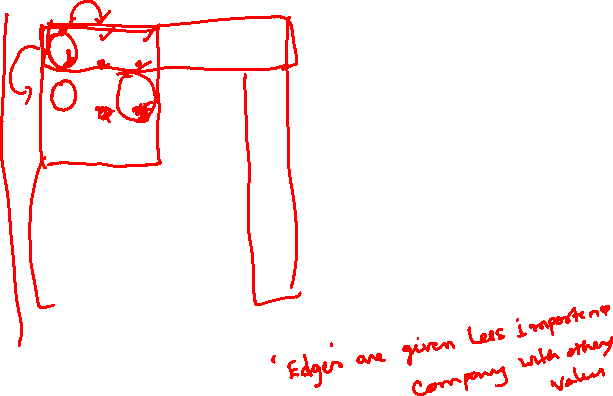 'Edges' are given Less importance
Company with other
Values